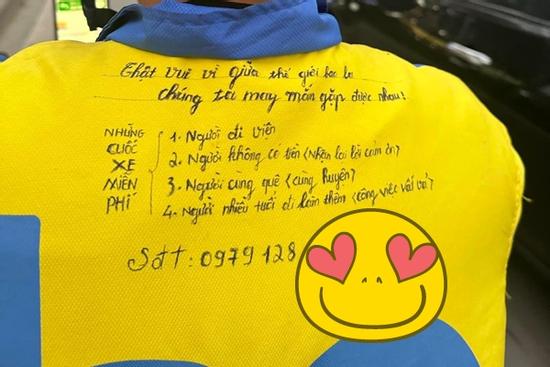 Thật vui vì giữa thế giới bao la
chúng ta may mắn gặp được nhau!
NHỮNG CUỐC XE MIỄN PHÍ
1. Người đi viện
2. Người không có tiền (Nhận lại lời cảm ơn)
3. Người cùng quê (cùng huyện)
4. Người nhiều tuổi đi làm thêm (công việc vất vả)
Sđt: 0979 128